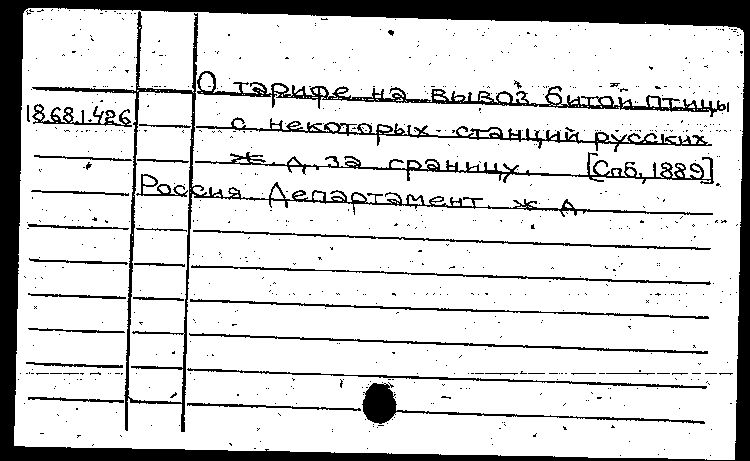 О тарифе на вывоз битой птицы
18.68.1.426 с некоторых станций русских
ж. д. за границу. [Спб, 1889].
Россия. Департамент ж. д.